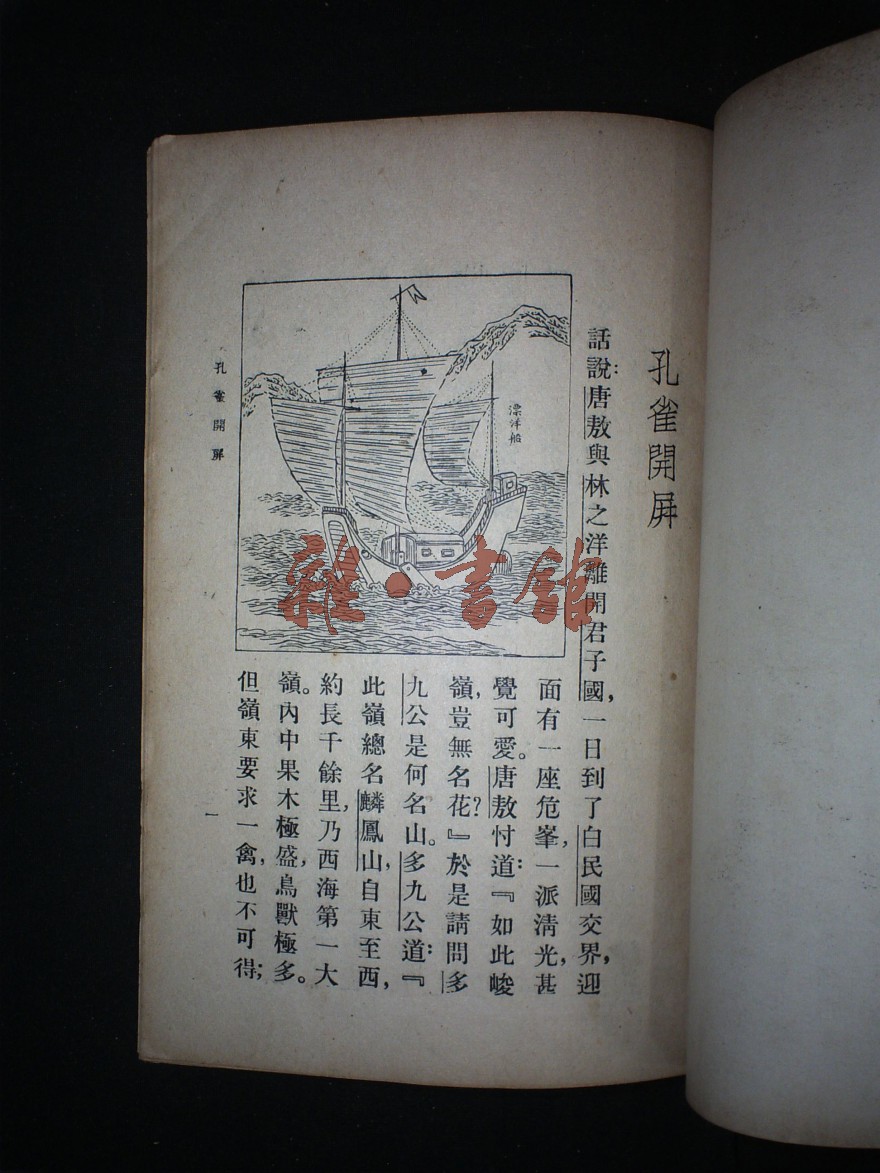 孔雀開屏
話說：唐敖與林之洋離開君子國，一日到了白民國交界，迎
面有一座危峯，一派清光，甚
覺可愛。唐敖忖道：『如此峻
嶺，豈無名花？』於是請問多
九公是何名山。多九公道：『
此嶺總名麟鳳山，自東至西，
約長千餘里，乃西海第一大
嶺。內中果木極盛，鳥獸極多。
但嶺東要求一禽，也不可得；
漂洋船
孔雀開屏
一
雜·書館